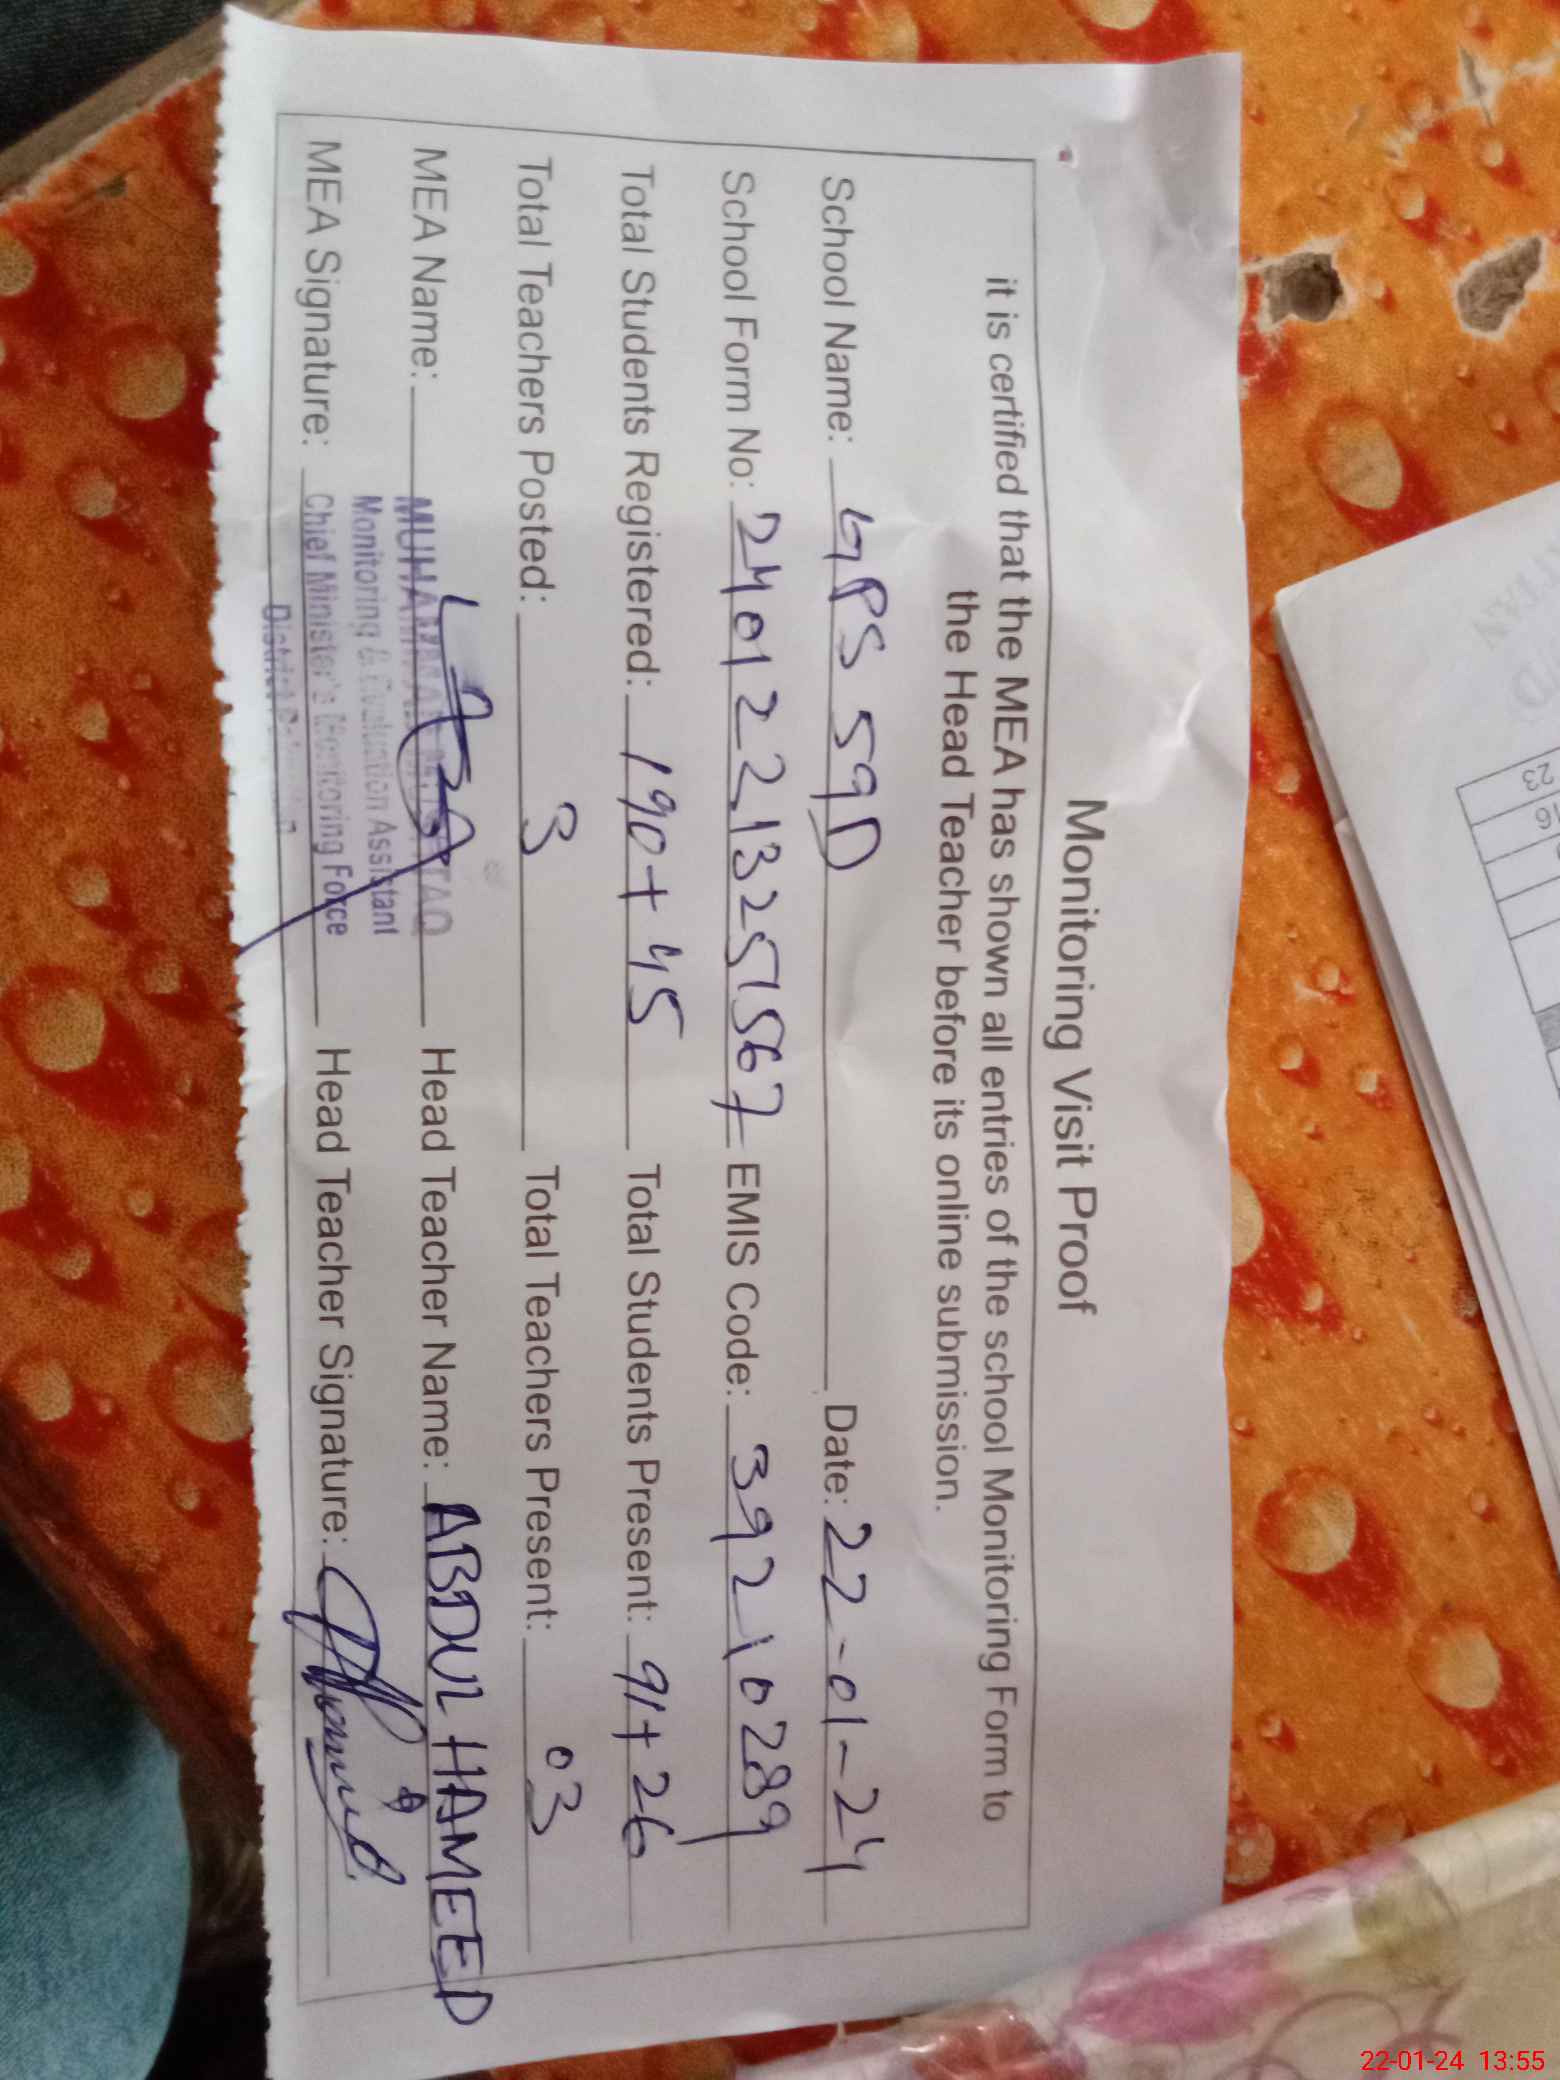 Monitoring Visit Proof
it is certified that the MEA has shown all entries of the school Monitoring Form to
the Head Teacher before its online submission.
School Name: GPS 59D Date: 22-01-24
School Form No: 24012213251567 EMIS Code: 39210289
Total Students Registered: 190+45 Total Students Present: 91+26
Total Teachers Posted: 3 Total Teachers Present: 03
MEA Name: MUHAMMAD Head Teacher Name: ABDUL HAMEED
Monitoring & Evaluation Assistant
MEA Signature: Chief Minister's Monitoring Force Head Teacher Signature: Hameed
District
23
22-01-24 13:55